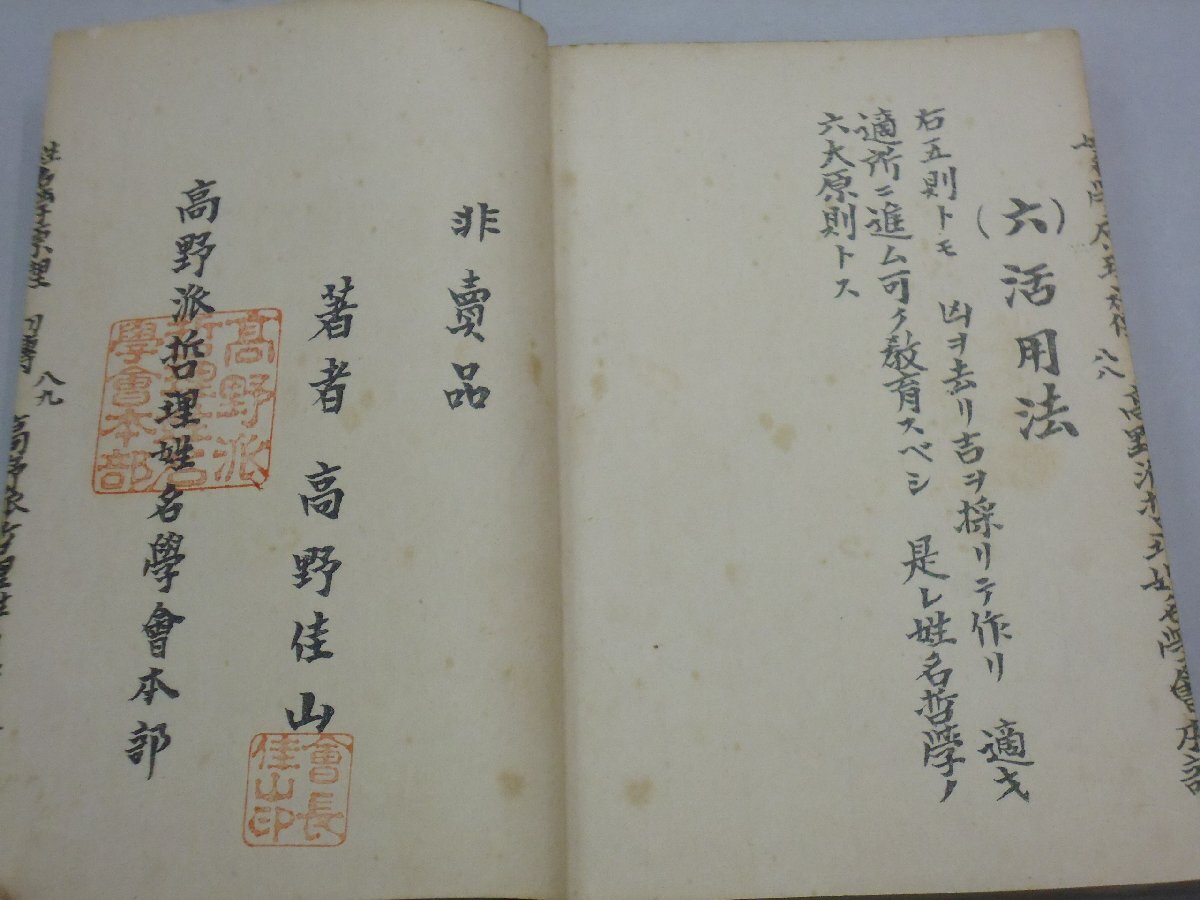 (六)活用法
右五則トモ 凶ヲ去リ吉ヲ採リテ作リ 適才
適所ニ進ム可ク教育スベシ 是レ姓名哲學ノ
六大原則トス
八八
非賣品
著者 高野佳山
會長
佳山印
高野派哲理姓名學會本部
高野派
哲理姓名
學會本部
八九